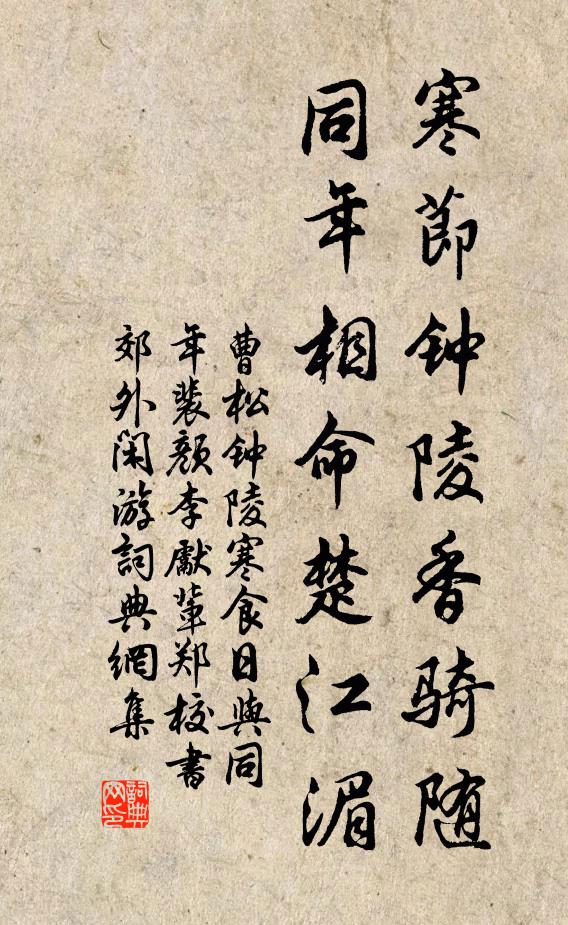 寒節钟陵香骑随
同年相命楚江湄
曹松钟陵寒食日與同
年裴顔李獻軰郑校書
郊外闲游詞典網集
詞典
网印